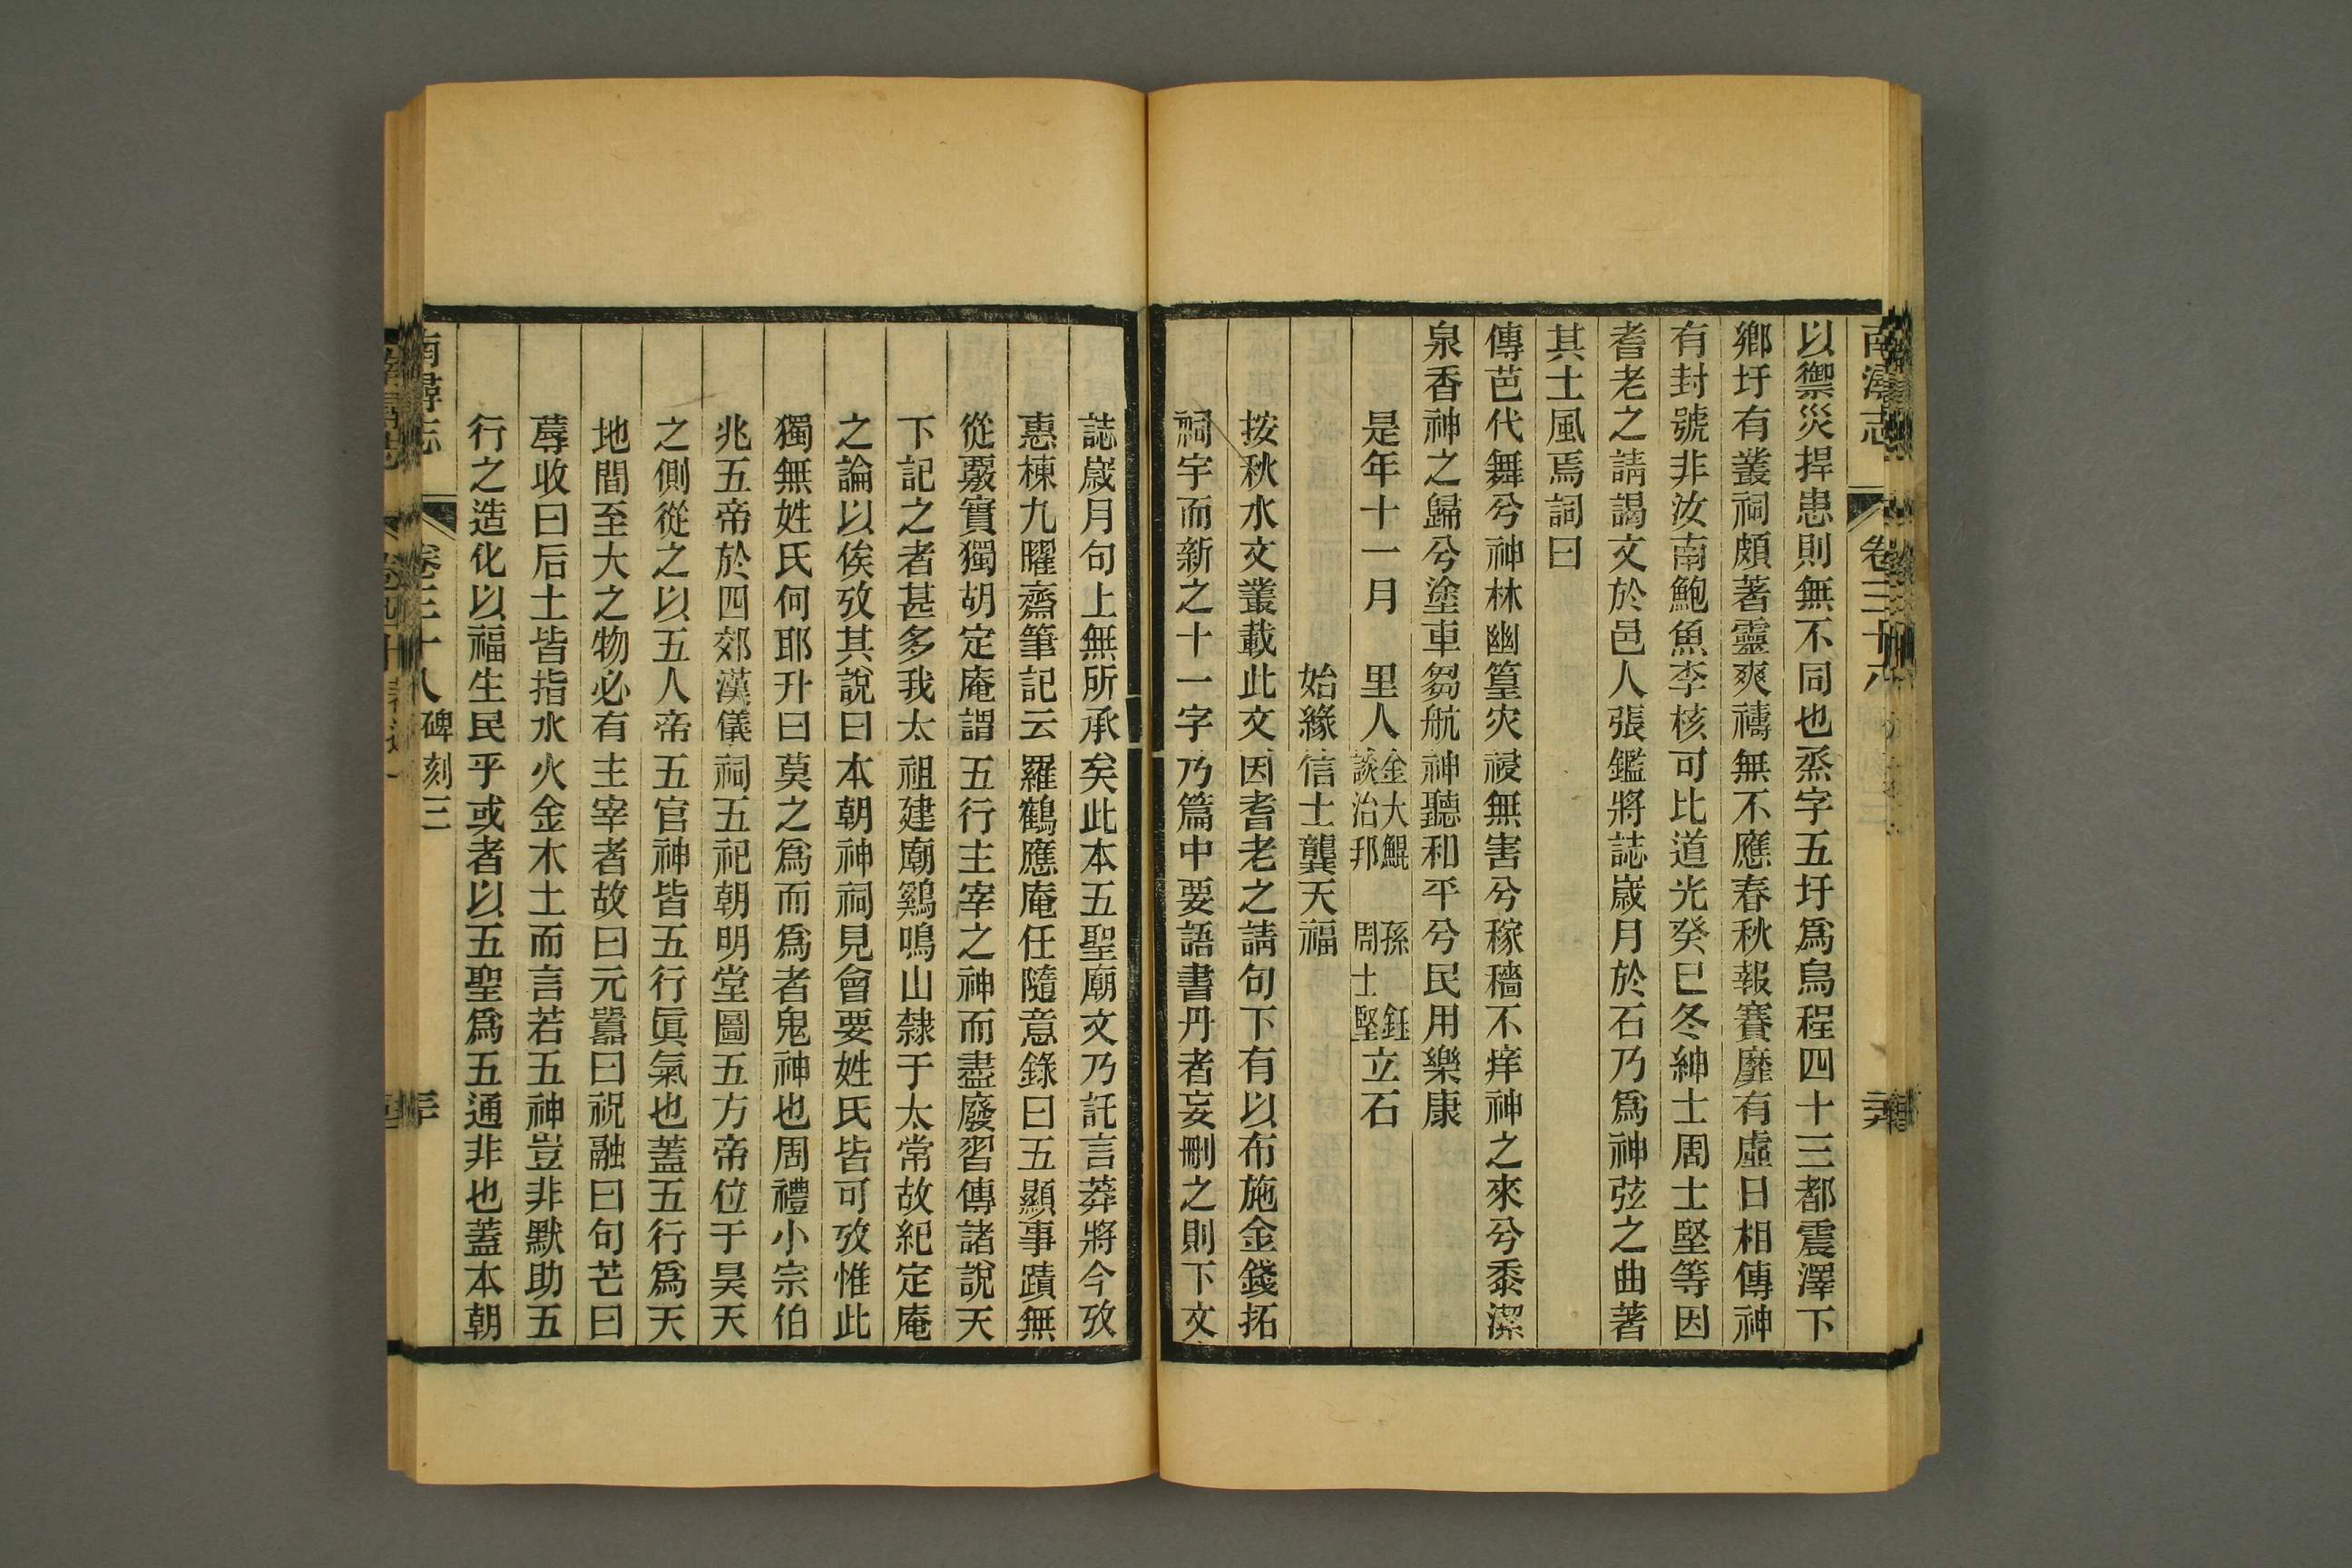 以禦災捍患則無不同也烝字五圩爲烏程四十三都震澤下
鄉圩有叢祠頗著靈爽禱無不應春秋報賽靡有虛日相傳神
有封號非汝南鮑魚李核可比道光癸巳冬紳士周士堅等因
耆老之請謁文於邑人張鑑將誌歲月於石乃爲神弦之曲著
其土風焉詞曰
傳芭代舞兮神林幽篁灾祲無害兮稼穡不痒神之來兮黍潔
泉香神之歸兮塗車芻航神聽和平兮民用樂康
是年十一月 里人 金大鯤 談治邦 孫鈺 周士堅 立石
始緣信士龔天福
按秋水文叢載此文因耆老之請句下有以布施金錢拓
祠宇而新之十一字乃篇中要語書丹者妄刪之則下文
誌歲月句上無所承矣此本五聖廟文乃託言莽將今攷
惠棟九曜齋筆記云羅鶴應庵任隨意錄曰五顯事蹟無
從覈實獨胡定庵謂五行主宰之神而盡廢習傳諸說天
下記之者甚多我太祖建廟鷄鳴山隸于太常故紀定庵
之論以俟攷其說曰本朝神祠見會要姓氏皆可攷惟此
獨無姓氏何耶升曰莫之爲而爲者鬼神也周禮小宗伯
兆五帝於四郊漢儀祠五祀朝明堂圖五方帝位于昊天
之側從之以五人帝五官神皆五行眞氣也蓋五行爲天
地間至大之物必有主宰者故曰元囂曰祝融曰句芒曰
蓐收曰后土皆指水火金木土而言若五神豈非默助五
行之造化以福生民乎或者以五聖爲五通非也蓋本朝
南潯志 卷三十八 碑刻三